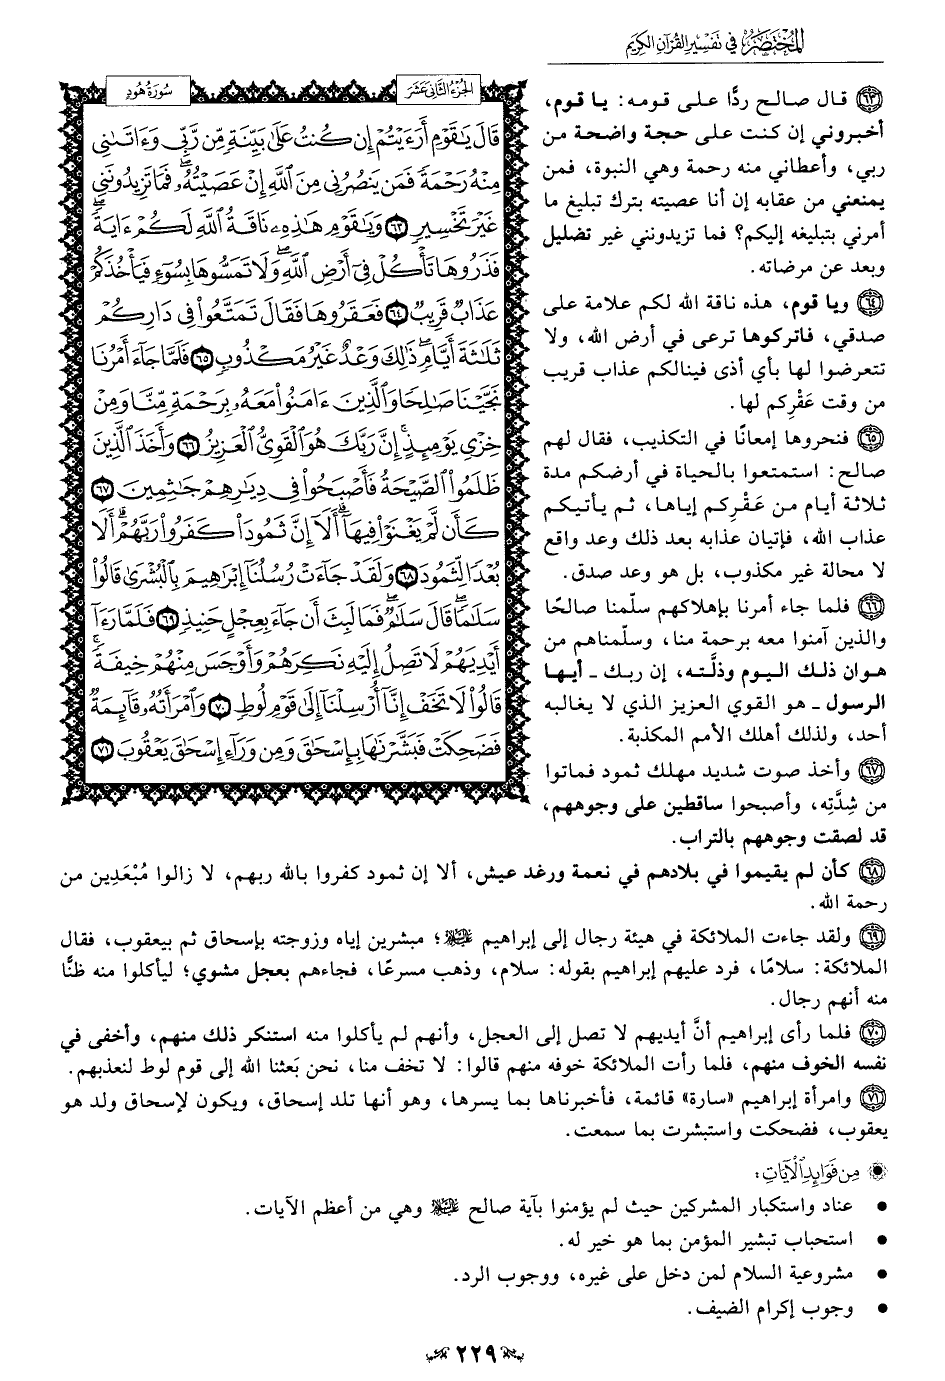 المختصر في تفسير القرآن الكريم
سورة هود
الجزء الثاني عشر
قَالَ يَٰقَوْمِ أَرَءَيْتُمْ إِن كُنتُ عَلَىٰ بَيِّنَةٍ مِّن رَّبِّي وَءَاتَىٰنِي
مِنْهُ رَحْمَةً فَمَن يَنصُرُنِي مِنَ ٱللَّهِ إِنْ عَصَيْتُهُۥۖ فَمَا تَزِيدُونَنِي
غَيْرَ تَخْسِيرٍ ٦٣ وَيَٰقَوْمِ هَٰذِهِۦ نَاقَةُ ٱللَّهِ لَكُمْ ءَايَةًۖ
فَذَرُوهَا تَأْكُلْ فِيٓ أَرْضِ ٱللَّهِۖ وَلَا تَمَسُّوهَا بِسُوٓءٍ فَيَأْخُذَكُمْ
عَذَابٌ قَرِيبٌ ٦٤ فَعَقَرُوهَا فَقَالَ تَمَتَّعُوا۟ فِي دَارِكُمْ
ثَلَٰثَةَ أَيَّامٍۖ ذَٰلِكَ وَعْدٌ غَيْرُ مَكْذُوبٍ ٦٥ فَلَمَّا جَآءَ أَمْرُنَا
نَجَّيْنَا صَٰلِحًا وَٱلَّذِينَ ءَامَنُوا۟ مَعَهُۥ بِرَحْمَةٍ مِّنَّا وَمِنْ
خِزْيِ يَوْمِئِذٍۚ إِنَّ رَبَّكَ هُوَ ٱلْقَوِيُّ ٱلْعَزِيزُ ٦٦ وَأَخَذَ ٱلَّذِينَ
ظَلَمُوا۟ ٱلصَّيْحَةُ فَأَصْبَحُوا۟ فِي دِيَٰرِهِمْ جَٰثِمِينَ ٦٧
كَأَن لَّمْ يَغْنَوْا۟ فِيهَآۗ أَلَآ إِنَّ ثَمُودَا۟ كَفَرُوا۟ رَبَّهُمْۗ أَلَا
بُعْدًا لِّثَمُودَ ٦٨ وَلَقَدْ جَآءَتْ رُسُلُنَآ إِبْرَٰهِيمَ بِٱلْبُشْرَىٰ قَالُوا۟
سَلَٰمًاۖ قَالَ سَلَٰمٌۖ فَمَا لَبِثَ أَن جَآءَ بِعِجْلٍ حَنِيذٍ ٦٩ فَلَمَّا رَءَآ
أَيْدِيَهُمْ لَا تَصِلُ إِلَيْهِ نَكِرَهُمْ وَأَوْجَسَ مِنْهُمْ خِيفَةًۚ
قَالُوا۟ لَا تَخَفْ إِنَّآ أُرْسِلْنَآ إِلَىٰ قَوْمِ لُوطٍ ٧٠ وَٱمْرَأَتُهُۥ قَآئِمَةٌ
فَضَحِكَتْ فَبَشَّرْنَٰهَا بِإِسْحَٰقَ وَمِن وَرَآءِ إِسْحَٰقَ يَعْقُوبَ ٧١
٦٣ قال صالح ردًّا على قومه: يا قوم،
أخبروني إن كنت على حجة واضحة من
ربي، وأعطاني منه رحمة وهي النبوة، فمن
يمنعني من عقابه إن أنا عصيته بترك تبليغ ما
أمرني بتبليغه إليكم؟ فما تزيدونني غير تضليل
وبعد عن مرضاته.
٦٤ ويا قوم، هذه ناقة الله لكم علامة على
صدقي، فاتركوها ترعى في أرض الله، ولا
تتعرضوا لها بأي أذى فينالكم عذاب قريب
من وقت عَقْرِكم لها.
٦٥ فنحروها إمعانًا في التكذيب، فقال لهم
صالح: استمتعوا بالحياة في أرضكم مدة
ثلاثة أيام من عَقْرِكم إياها، ثم يأتيكم
عذاب الله، فإتيان عذابه بعد ذلك وعد واقع
لا محالة غير مكذوب، بل هو وعد صدق.
٦٦ فلما جاء أمرنا بإهلاكهم سلّمنا صالحًا
والذين آمنوا معه برحمة منا، وسلّمناهم من
هوان ذلك اليوم وذلَّته، إن ربك ـ أيها
الرسول ـ هو القوي العزيز الذي لا يغالبه
أحد، ولذلك أهلك الأمم المكذبة.
٦٧ وأخذ صوت شديد مهلك ثمود فماتوا
من شِدَّتِه، وأصبحوا ساقطين على وجوههم،
قد لصقت وجوههم بالتراب.
٦٨ كأن لم يقيموا في بلادهم في نعمة ورغد عيش، ألا إن ثمود كفروا بالله ربهم، لا زالوا مُبْعَدِين من
رحمة الله.
٦٩ ولقد جاءت الملائكة في هيئة رجال إلى إبراهيم ﷺ؛ مبشرين إياه وزوجته بإسحاق ثم بيعقوب، فقال
الملائكة: سلامًا، فرد عليهم إبراهيم بقوله: سلام، وذهب مسرعًا، فجاءهم بعجل مشوي؛ ليأكلوا منه ظنًّا
منه أنهم رجال.
٧٠ فلما رأى إبراهيم أنَّ أيديهم لا تصل إلى العجل، وأنهم لم يأكلوا منه استنكر ذلك منهم، وأخفى في
نفسه الخوف منهم، فلما رأت الملائكة خوفه منهم قالوا: لا تخف منا، نحن بَعثنا الله إلى قوم لوط لنعذبهم.
٧١ وامرأة إبراهيم «سارة» قائمة، فأخبرناها بما يسرها، وهو أنها تلد إسحاق، ويكون لإسحاق ولد هو
يعقوب، فضحكت واستبشرت بما سمعت.
من فوائد الآيات:
• عناد واستكبار المشركين حيث لم يؤمنوا بآية صالح ﷺ وهي من أعظم الآيات.
• استحباب تبشير المؤمن بما هو خير له.
• مشروعية السلام لمن دخل على غيره، ووجوب الرد.
• وجوب إكرام الضيف.
٢٢٩